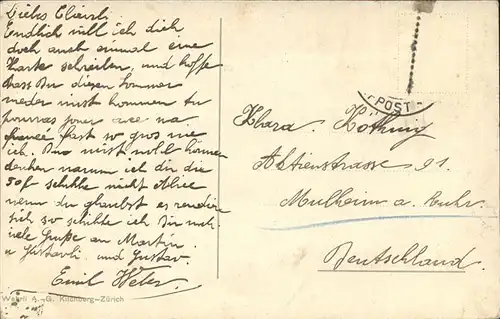 Liebs Clärch
Endlich will ich dich
doch auch einmal eine
Karte schreiben, und hoffe
dass Du diesen Sommer
wieder wirst kommen tu
pourras jouer avec ma
fast so gros wie
ich. Du wirst wohl können
denken warum ich dir die
50f schikke nicht Alice
wenn du glaubst es rendiere
sich so schikke ich Dir mehr
viele Grüße an Martin
u Gustavli und Gustav.
Emil Weber
Wehrli A.-G. Kilchberg-Zürich
POST
Klara
Aktienstrasse 91.
Mülheim a. Ruhr
Deutschland.